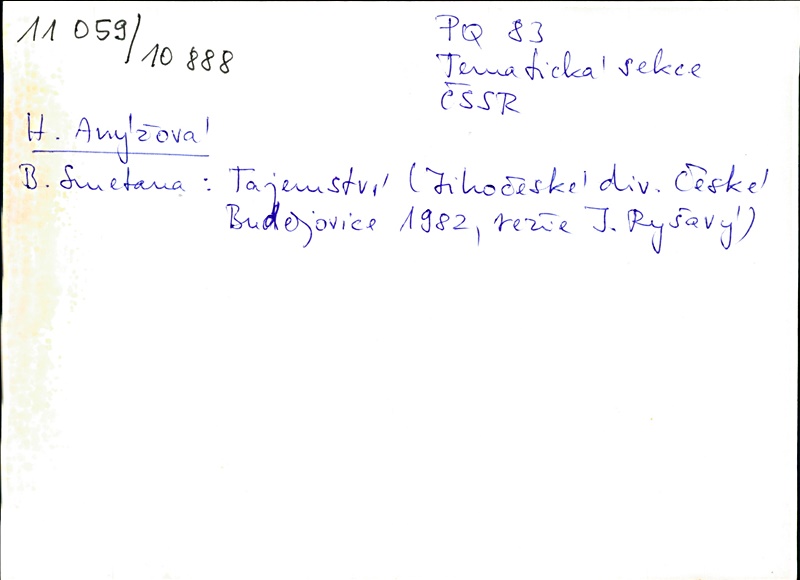 11 059/10 888
PQ 83
Tematická sekce
ČSSR
H. Anýžová
B. Smetana : Tajemství (Jihočeské div. České
Budějovice 1982, režie J. Ryšavý)